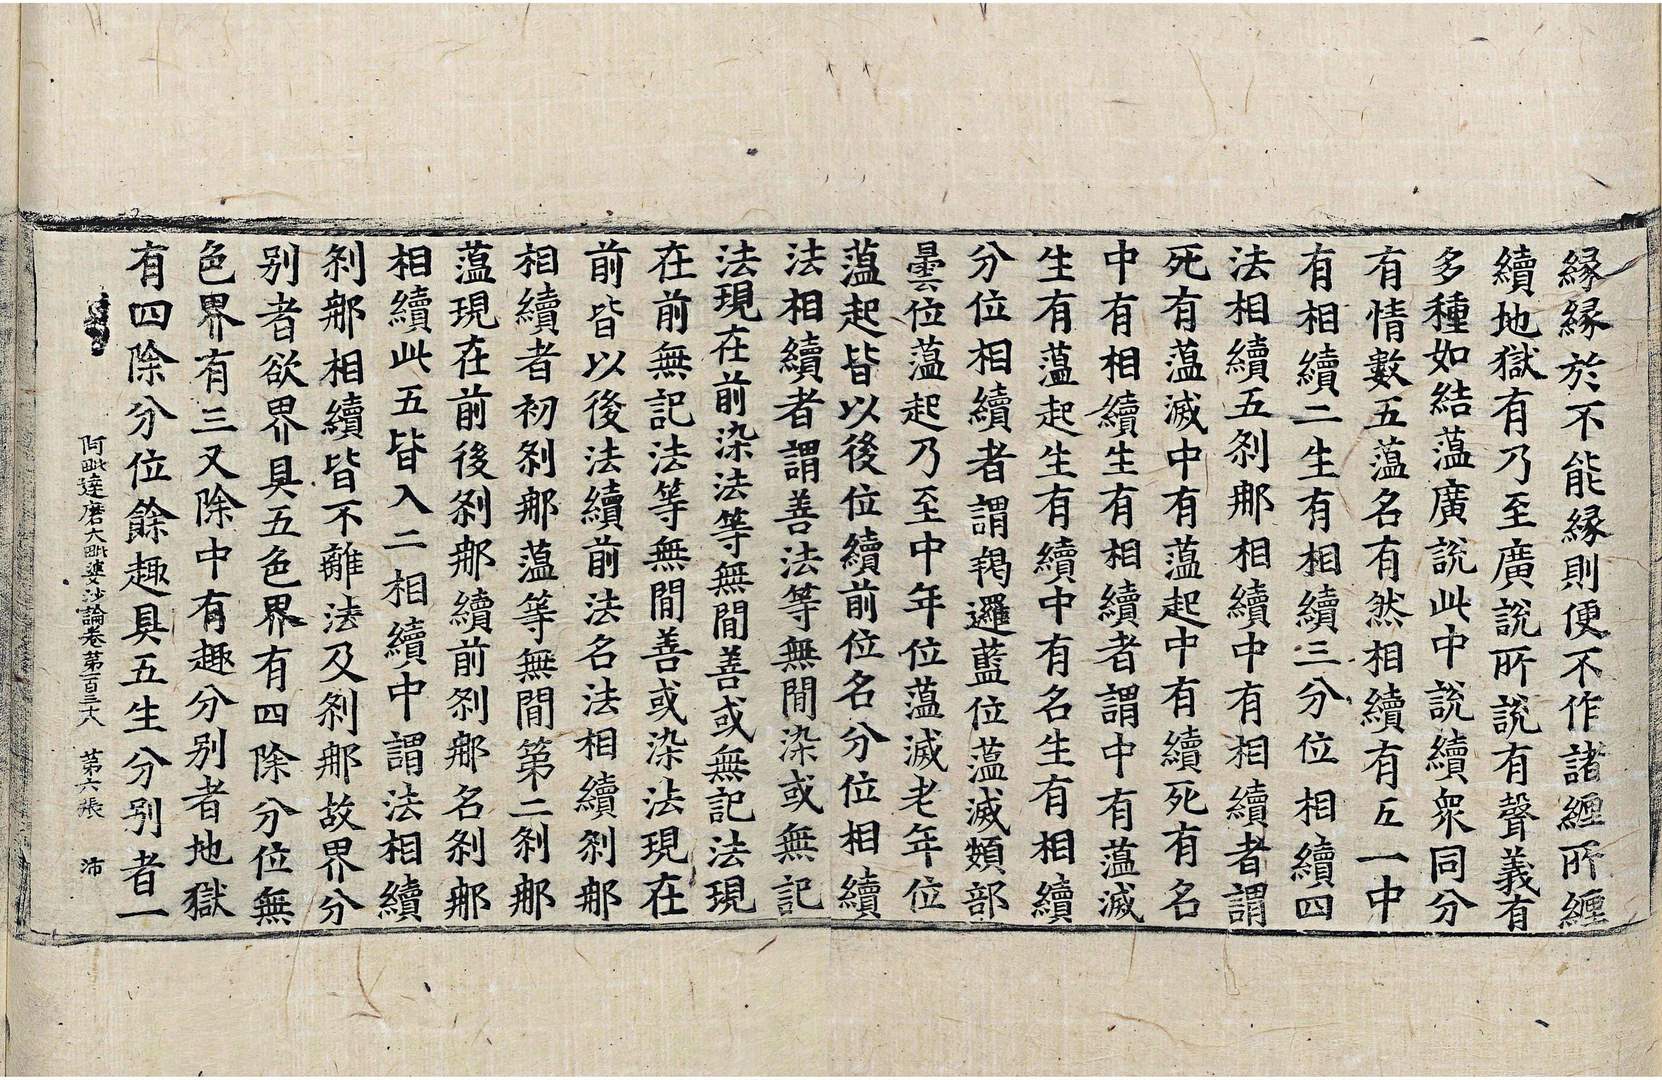 緣緣於不能緣則便不作諸纏所纏
續地獄有乃至廣說所說有聲義有
多種如結蘊廣說此中說續衆同分
有情數五蘊名有然相續有五一中
有相續二生有相續三分位相續四
法相續五刹那相續中有相續者謂
死有蘊滅中有蘊起中有續死有名
中有相續生有相續者謂中有蘊滅
生有蘊起生有續中有名生有相續
分位相續者謂羯邏藍位蘊滅頞部
曇位蘊起乃至中年位蘊滅老年位
蘊起皆以後位續前位名分位相續
法相續者謂善法等無閒染或無記
法現在前染法等無閒善或無記法現
在前無記法等無閒善或染法現在
前皆以後法續前法名法相續刹那
相續者初刹那蘊等無閒第二刹那
蘊現在前後刹那續前刹那名刹那
相續此五皆入二相續中謂法相續
刹那相續皆不離法及刹那故界分
別者欲界具五色界有四除分位無
色界有三又除中有趣分別者地獄
有四除分位餘趣具五生分別者一
阿毗達磨大毗婆沙論卷第一百三十八 第六張 沛